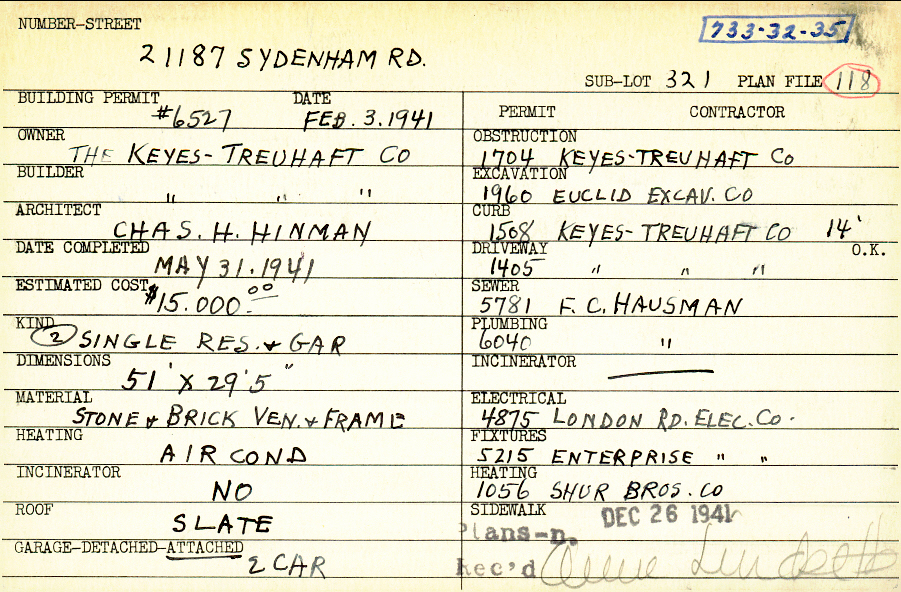 NUMBER-STREET
733-32-35
21187 SYDENHAM RD.
SUB-LOT 321 PLAN FILE 118
BUILDING PERMIT DATE
#6527 FEB. 3. 1941
OWNER
THE KEYES-TREUHAFT CO
BUILDER
" " "
ARCHITECT
CHAS. H. HINMAN
DATE COMPLETED
MAY 31. 1941
ESTIMATED COST
$15.000.00
KIND
2 SINGLE RES. & GAR
DIMENSIONS
51' X 29'5"
MATERIAL
STONE & BRICK VEN. & FRAME
HEATING
AIR COND
INCINERATOR
NO
ROOF
SLATE
GARAGE-DETACHED-ATTACHED
2 CAR
PERMIT CONTRACTOR
OBSTRUCTION
1704 KEYES-TREUHAFT Co
EXCAVATION
1960 EUCLID EXCAV. CO
CURB
1508 KEYES-TREUHAFT CO 14'
DRIVEWAY O.K.
1405 " " "
SEWER
5781 F. C. HAUSMAN
PLUMBING
6040 "
INCINERATOR
ELECTRICAL
4875 LONDON RD. ELEC. Co.
FIXTURES
5215 ENTERPRISE " "
HEATING
1056 SHUR BROS. CO
SIDEWALK
DEC 26 1941
Plans-n.
Rec'd